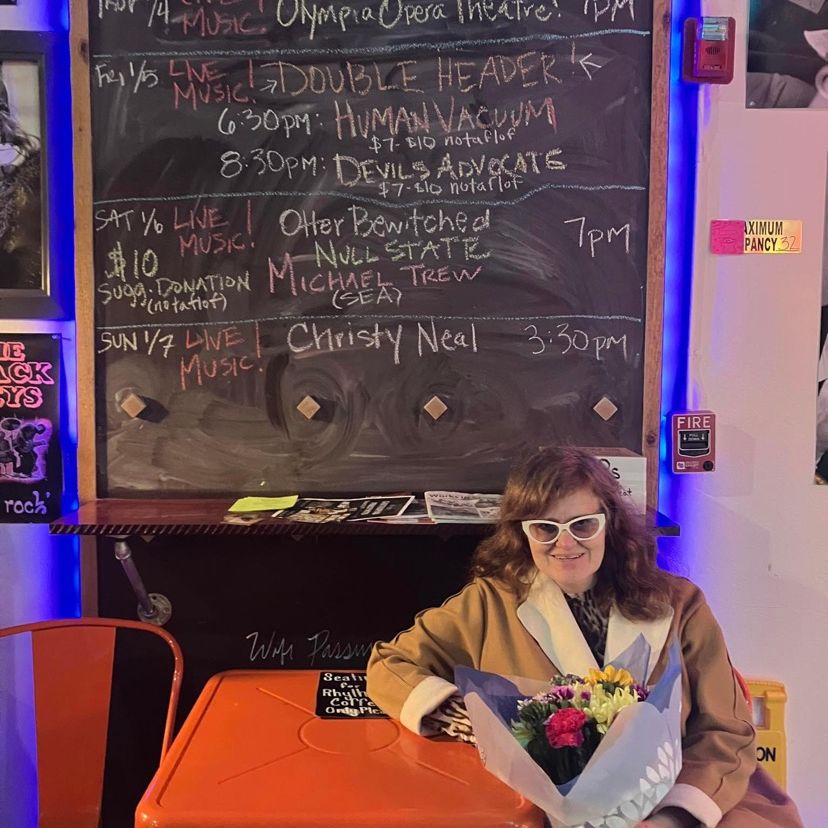 1/4 MUSIC! Olympia Opera Theatre! 7pm
Fri 1/5 LIVE MUSIC! → DOUBLE HEADER! ←
6:30pm: HUMAN VACUUM
$7-$10 notaflof
8:30pm: DEVILS ADVOCATE
$7-$10 notaflof
SAT 1/6 LIVE MUSIC! Otter Bewitched 7pm
NULL STATE
$10 MICHAEL TREW
SUGG. DONATION (SEA)
(notaflof)
SUN 1/7 LIVE MUSIC! Christy Neal 3:30pm
AXIMUM
PANCY 32
FIRE
ACK
rock'
Wifi
for
Only
ON